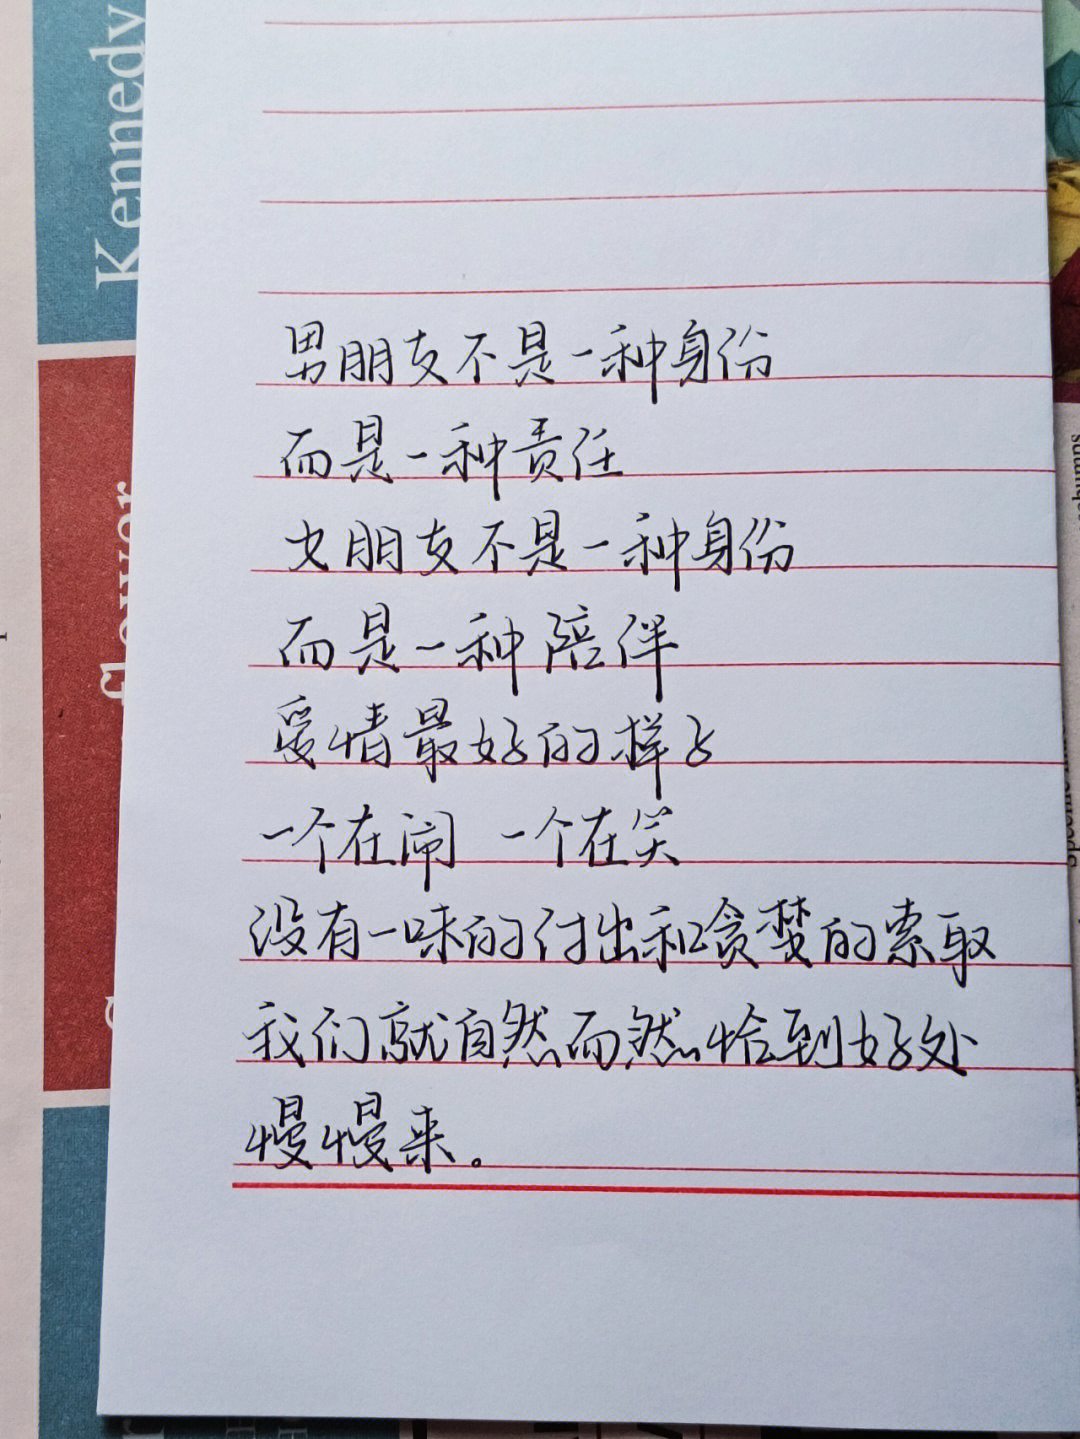 男朋友不是一种身份
而是一种责任
女朋友不是一种身份
而是一种陪伴
爱情最好的样子
一个在闹 一个在笑
没有一味的付出和贪婪的索取
我们就自然而然恰到好处
慢慢来。
Kennedy
flower